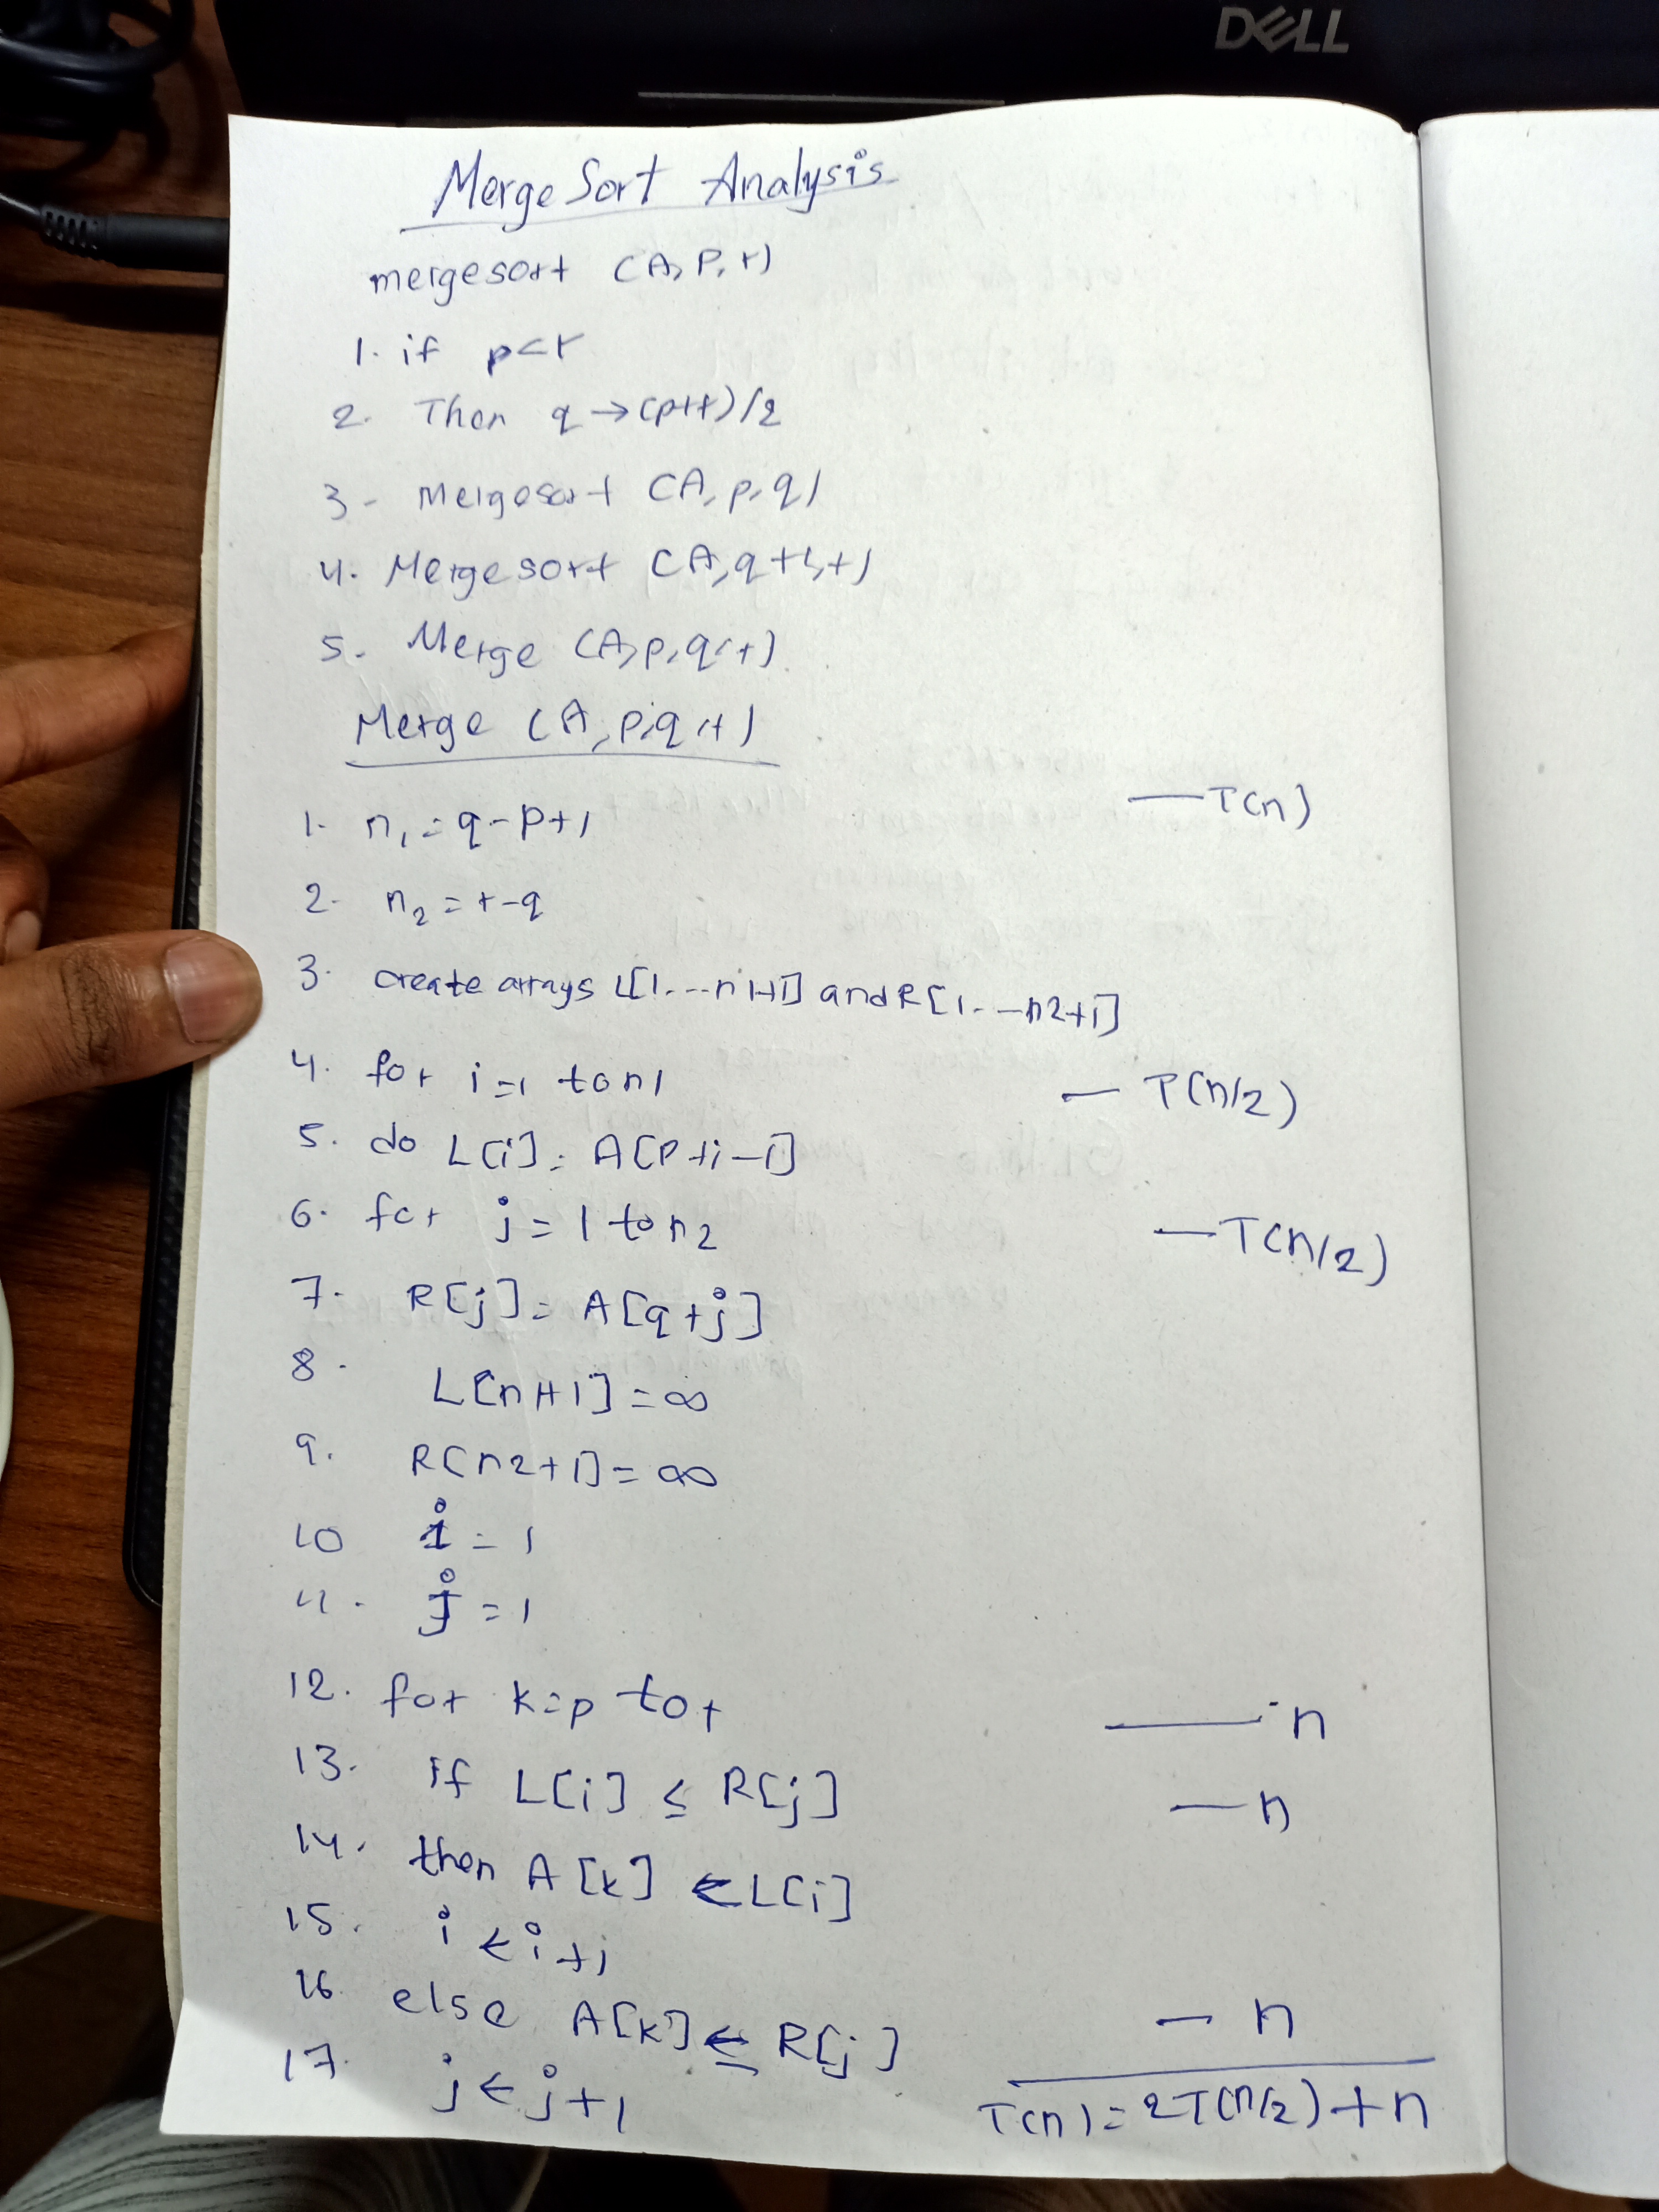 DELL
Merge Sort Analysis
mergesort (A, P, r)
1. if p<r
2. Then q → (p+r)/2
3- Mergesort (A, p, q)
4. Mergesort (A, q+1, r)
5. Merge (A, p, q, r)
Merge (A, p, q, r)
1. n₁ = q-p+1 —T(n)
2- n₂ = r-q
3. create arrays L[1---n1+1] and R[1---n2+1]
4. for i=1 to n1 — T(n/2)
5. do L[i] = A[P+i-1]
6. for j = 1 to n2 —T(n/2)
7. R[j] = A[q+j]
8. L[n1+1] = ∞
9. R[n2+1] = ∞
10 i = 1
11. j = 1
12. for k=p to r — n
13. if L[i] ≤ R[j] — n
14. then A[k] ← L[i]
15. i ← i+1
16. else A[k] ← R[j] — n
17. j ← j+1 T(n) = 2T(n/2) + n